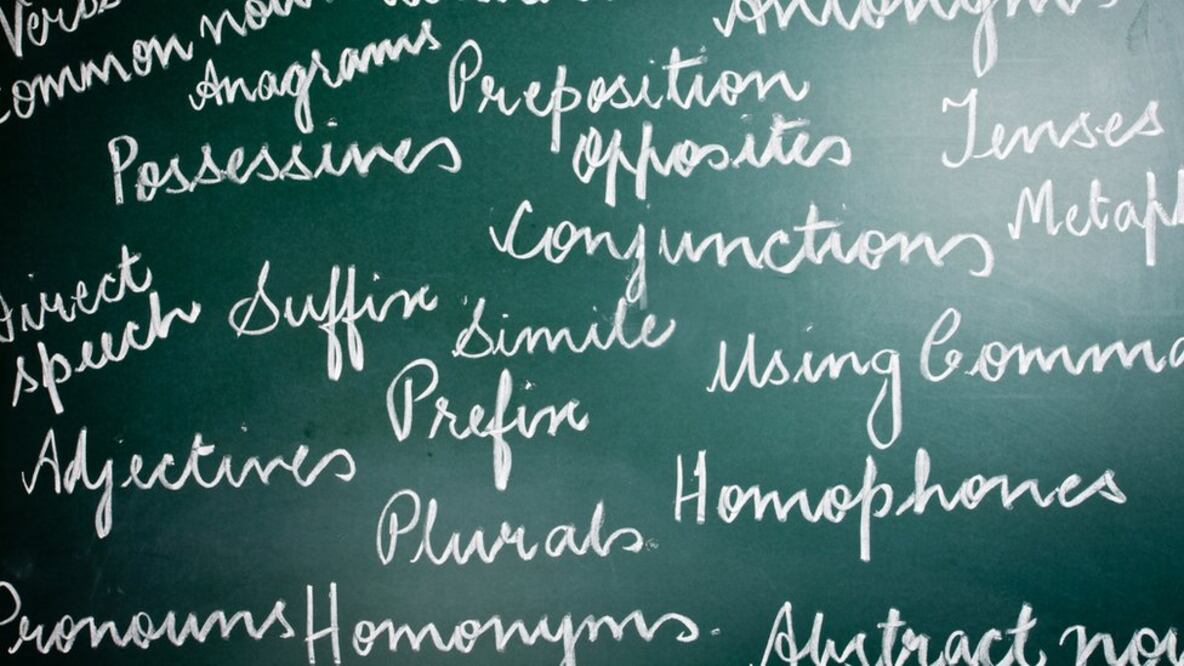 Verbs
Common noun
Anagrams
Antonyms
Preposition
Possessives
Opposites
Tenses
Conjunctions
Metaph
Direct
speech
Suffix
Simile
Using Comma
Prefix
Adjectives
Homophones
Plurals
Pronouns
Homonyms
Abstract nou